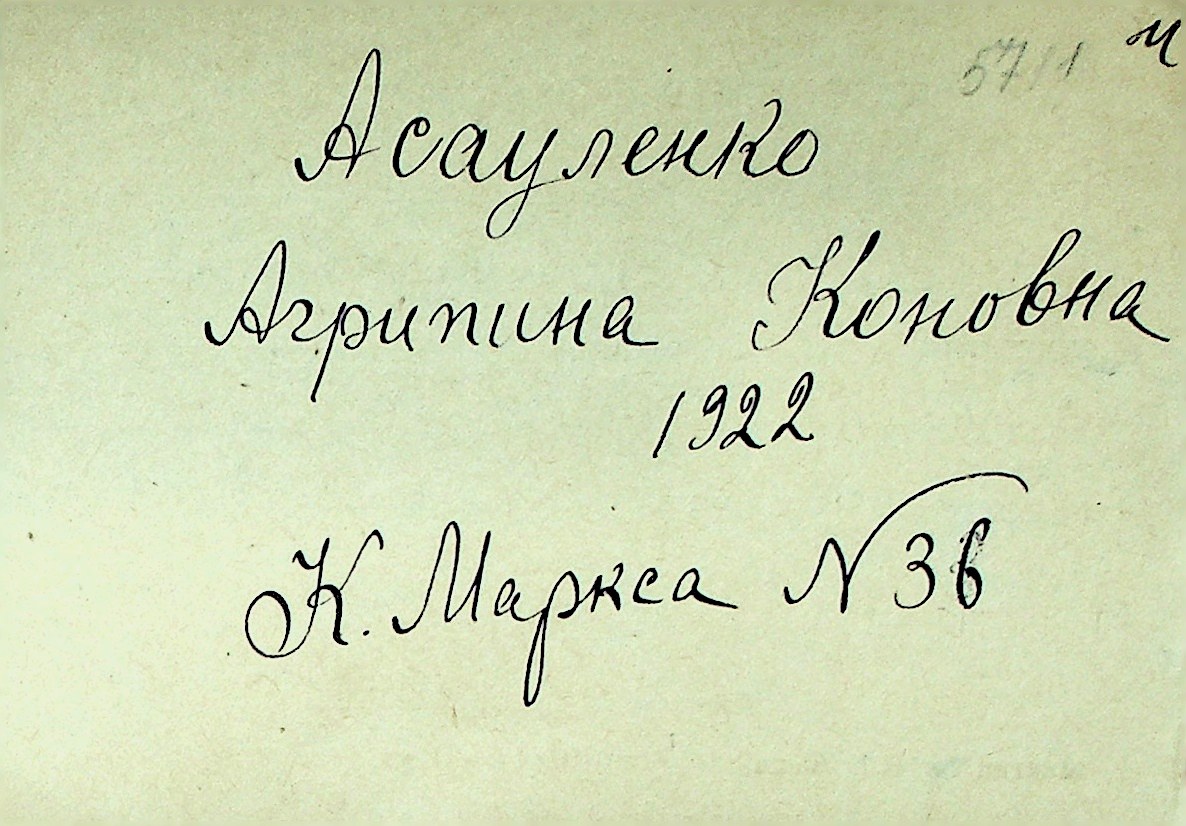 57/1 и
Асауленко
Агрипина Коновна
1922
К. Маркса № 36